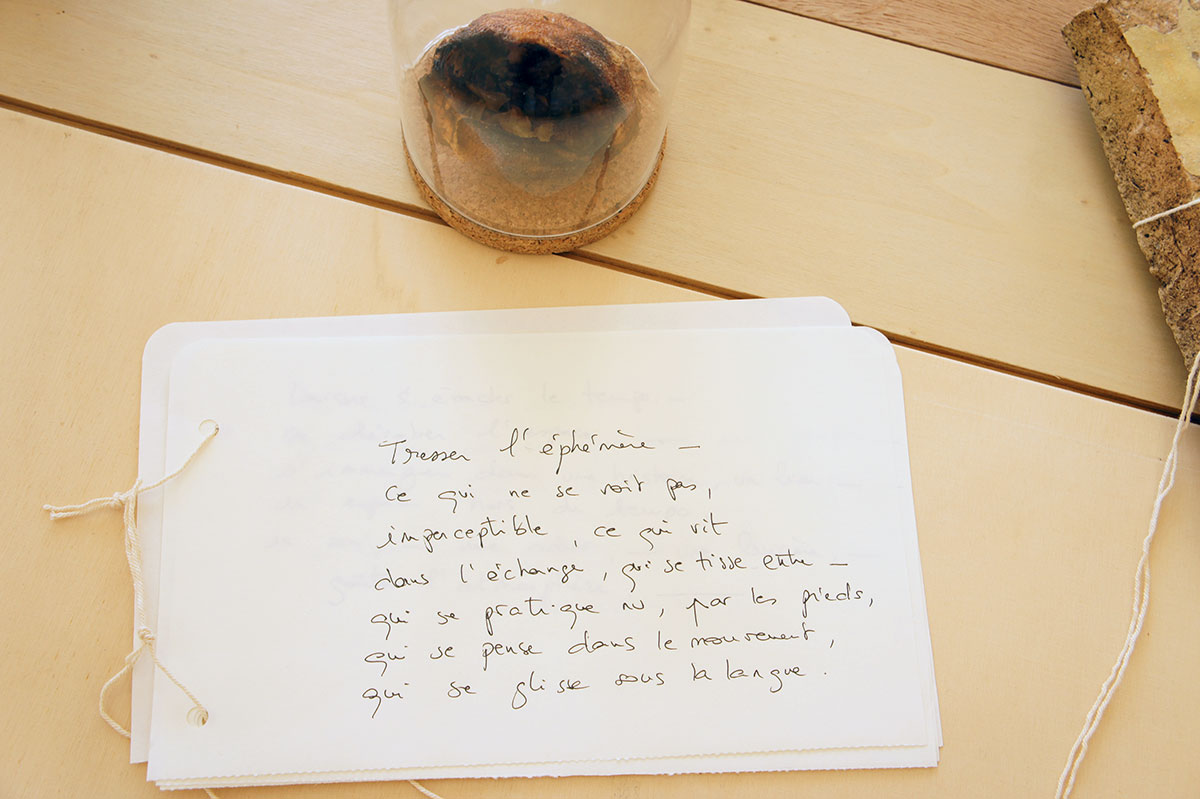 Tresser l'éphémère —
ce qui ne se voit pas,
imperceptible, ce qui vit
dans l'échange, qui se tisse entre —
qui se pratique nu, par les pieds,
qui se pense dans le mouvement,
qui se glisse sous la langue.